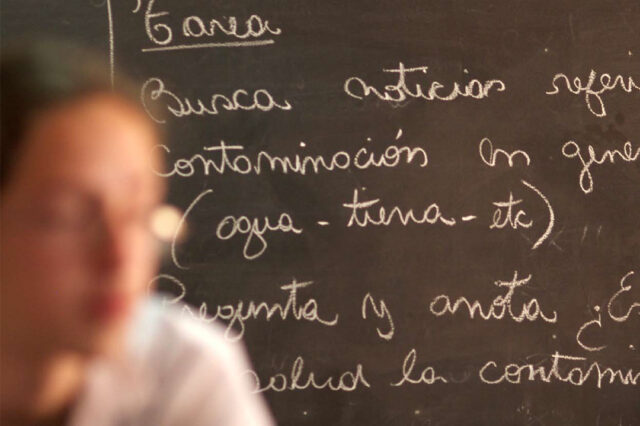 Tarea
Busca noticias refer
contaminación en gene
(agua - tierra - etc)
Pregunta y anota ¿Es
salud la contami